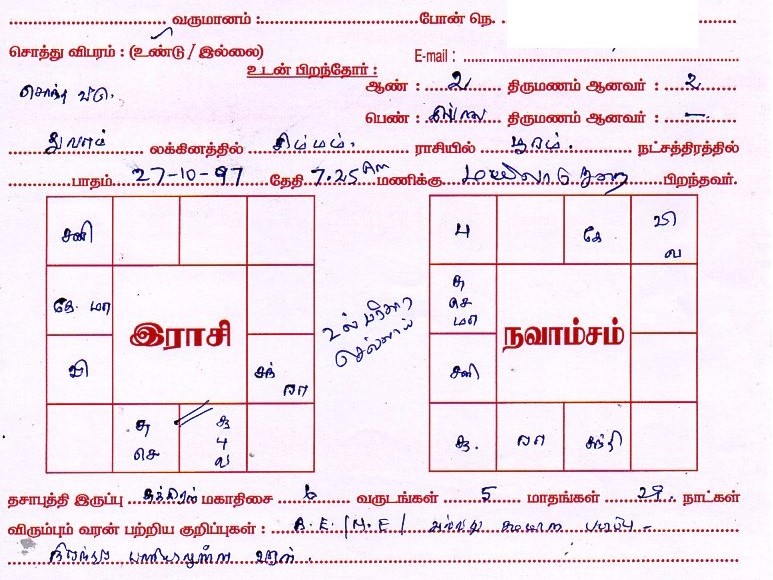 வருமானம் : போன் நெ.
சொத்து விபரம் : (உண்டு / இல்லை) E-mail :
உடன் பிறந்தோர் :
சொந்த வீடு. ஆண் : 2 திருமணம் ஆனவர் : 2
பெண் : இல்லை திருமணம் ஆனவர் : -
துலாம் லக்கினத்தில் சிம்மம். ராசியில் பூரம். நட்சத்திரத்தில்
பாதம் 27-10-97 தேதி 7.25 Am மணிக்கு மயிலாடுதுறை பிறந்தவர்.
சனி
கே. மா
வி
சு
செ
சூ
பு
ல
சந்
ரா
இராசி
பு
கே
வி
ல
சு
செ
மா
சனி
சூ.
ரா
சந்தி
நவாம்சம்
தசாபுத்தி இருப்பு சுக்கிரன் மகாதிசை 6 வருடங்கள் 5 மாதங்கள் 29 நாட்கள்
விரும்பும் வரன் பற்றிய குறிப்புகள் : B.E / M.E / படிப்பு -
நிரந்தர பணியாளர்